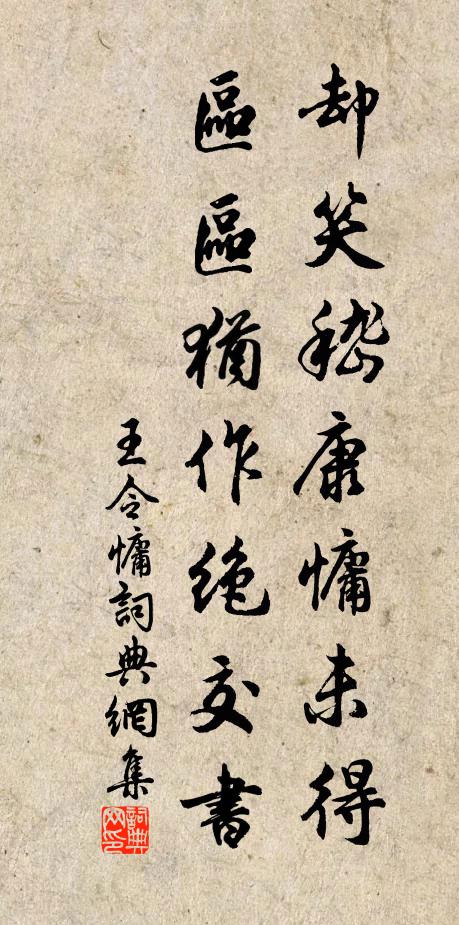 却笑嵇康慵未得
區區猶作絶交書
王令慵詞典網集
詞典網印